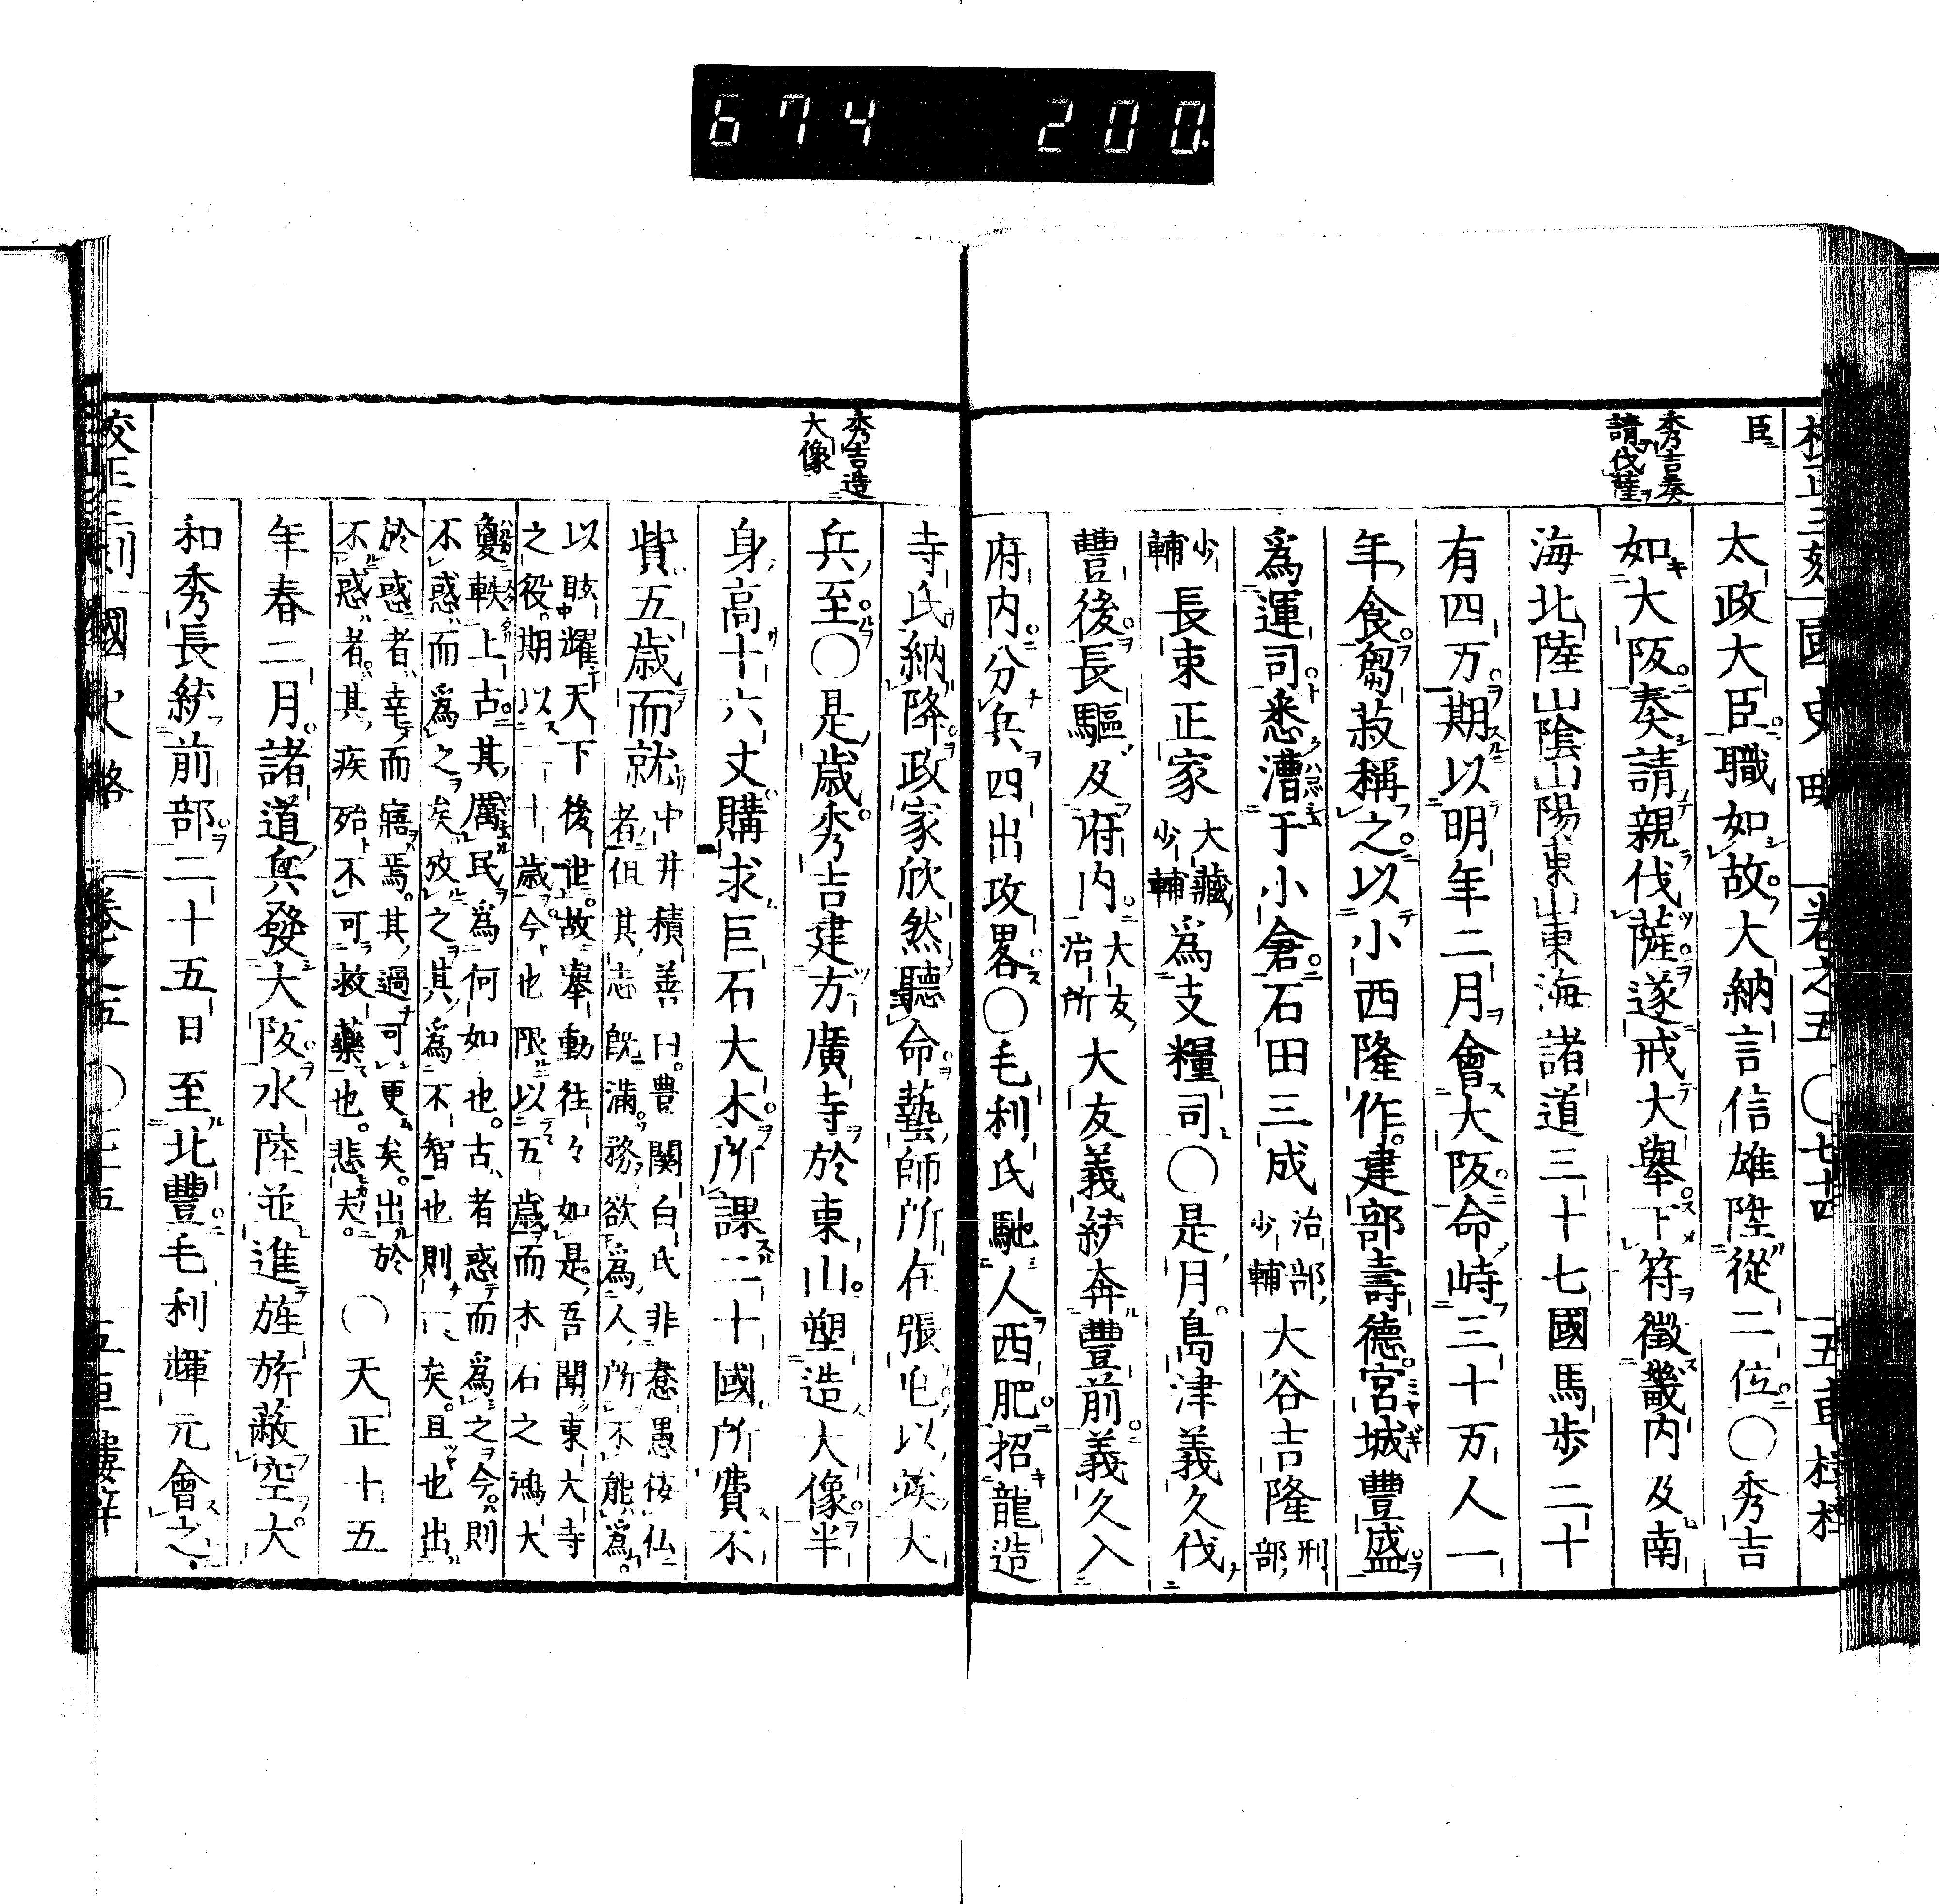 674 200
國史略 卷之五 〇七十四
臣
太政大臣職如故大納言信雄陞從二位〇秀吉
秀吉奏
請伐薩
如大阪奏請親伐薩遂戒大舉下符徵畿内及南
海北陸山陰山陽東山東海諸道三十七國馬歩二十
有四万期以明年二月會大阪命峙三十万人一
年食芻菽稱之以小西隆作建部壽德宮城豐盛
爲運司悉漕于小倉石田三成治部少輔大谷吉隆刑部
少輔長束正家大藏少輔爲支糧司〇是月島津義久伐
豐後長驅及府内大友治所大友義統奔豐前義久入
府内分兵四出攻畧〇毛利氏馳人西肥招龍造
寺氏納降政家欣然聽命藝師所在張屯以竢大
秀吉造
大像
兵至〇是歲秀吉建方廣寺於東山塑造大像半
身高十六丈購求巨石大木所課二十國所費不
貲五歲而就中井積善曰豊關白氏非惷愚佞仏
者但其志既滿務欲爲人所不能爲
以眩耀天下後世故舉動往々如是吾聞東大寺
之役期以二十歲今也限以五歲而木石之鴻大
敻軼上古其厲民爲何如也古者惑而爲之今則
不惑而爲之矣攷之其爲不智也則一矣且也出
於惑者幸而寤焉其過可更矣出於
不惑者其疾殆不可救藥也悲夫〇天正十五
年春二月諸道兵發大阪水陸並進旌旂蔽空大
和秀長統前部二十五日至北豐毛利輝元會之